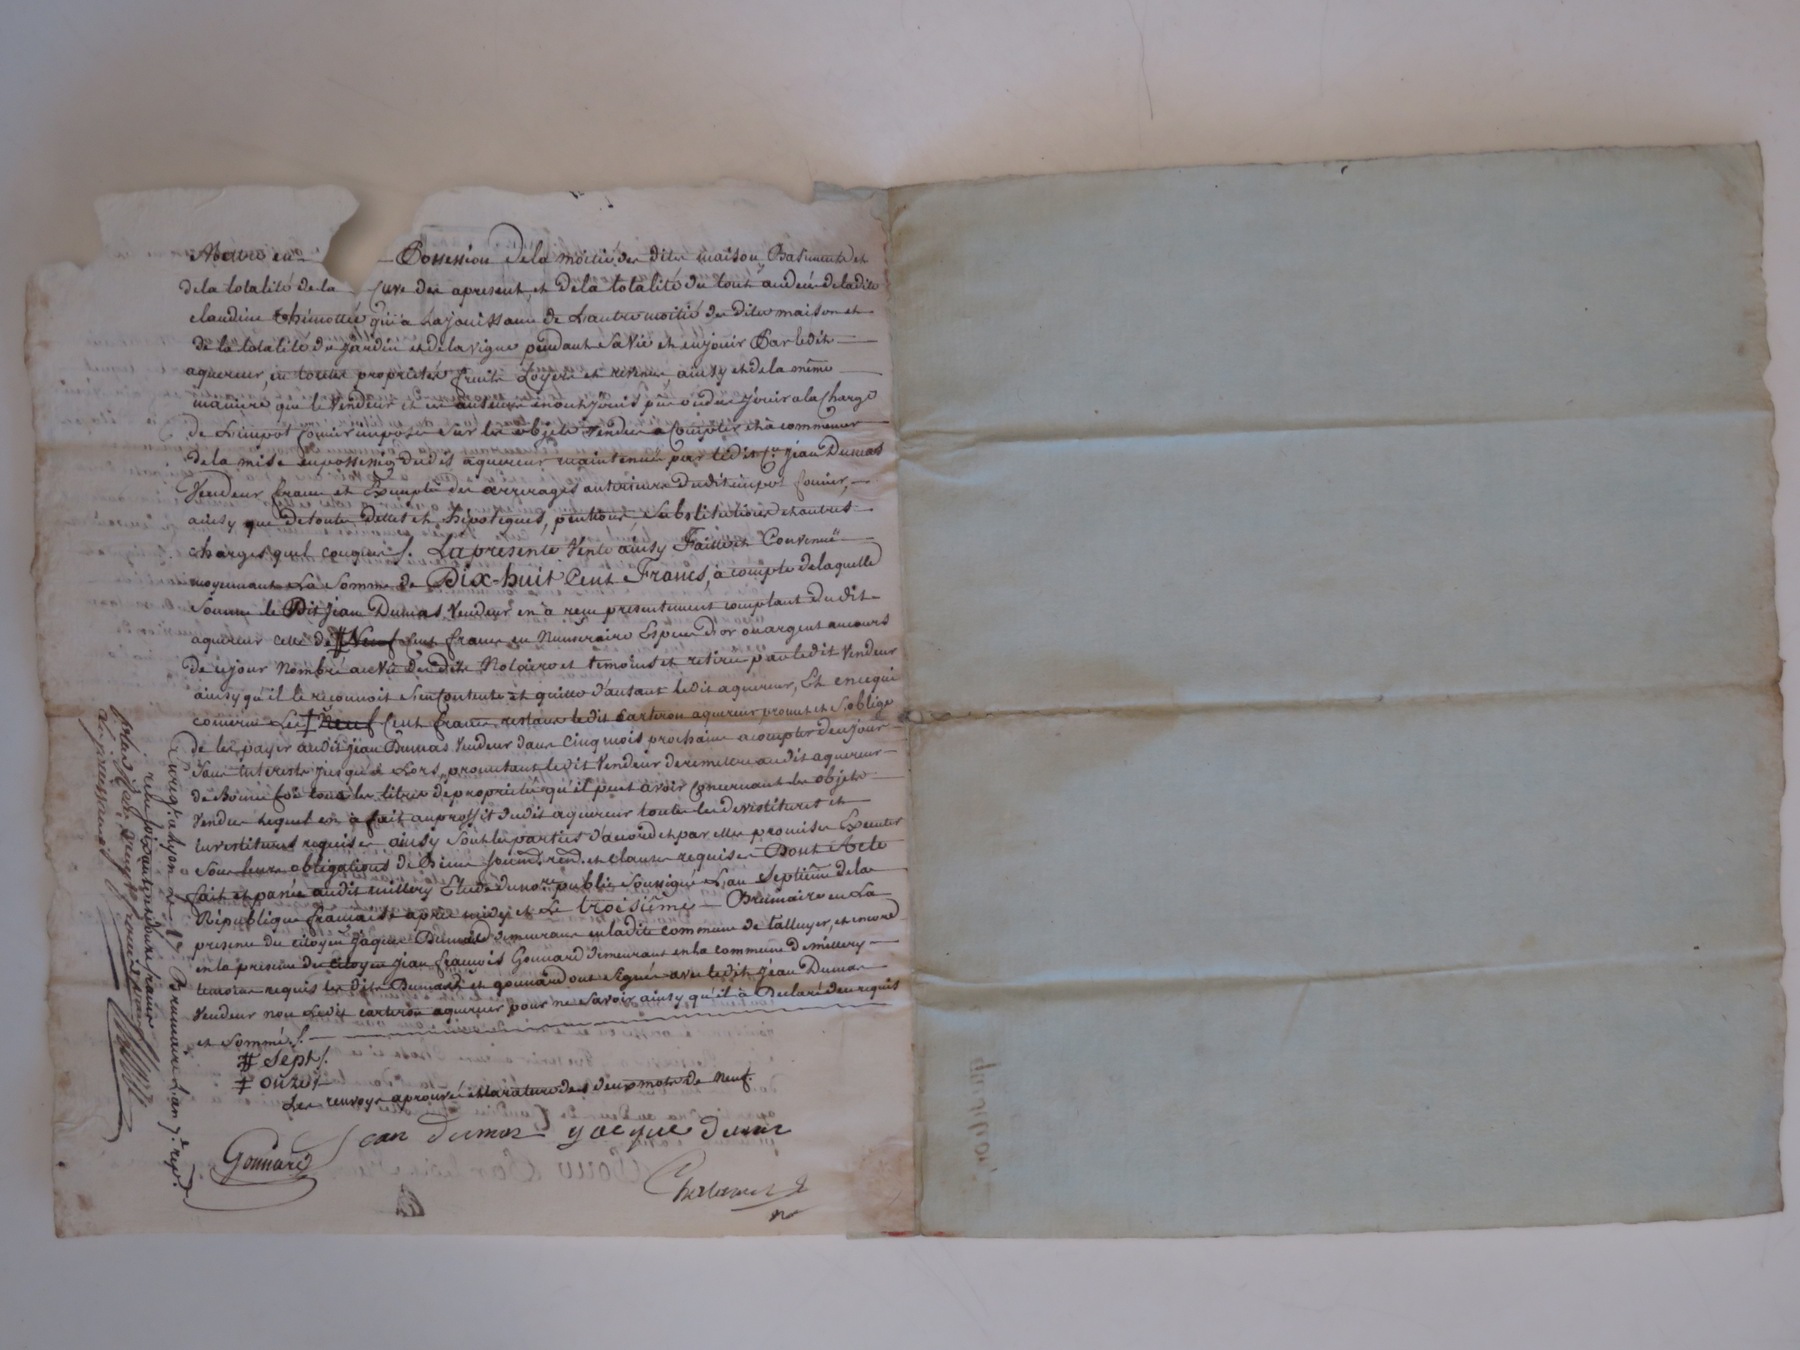 Possession de la moitié des dites maison, Basiments et
de la totalité de la Cuve des apresent, et de la totalité du tout au deces de ladite
claudine thimottée qui a la jouissance de Lautre moitié des dites maison et
de la totalité du jardin et de la vigne pendant sa vie et en jouir Par ledit
aquereur, en toutes proprietés fruits Loyers et revenus, ainsy et de la même
maniere que le Vendeur et ses auteurs en ont jouis pu ou deu jouir a la Charge
de L'impôt foncier imposé sur les objets Vendus a Compter et à commencer
de la mise en possession dudit aquereur maintenue par ledit Cn jean Dumas
Vendeur franc et Exempte des arrerages anterieurs dudit impot foncier,
ainsy que de toutes dettes et hipoteques, pentions, substitutions et autres
charges quelconques /. La presente Vente ainsy Faitte et Convenuë
moyennant La Somme de Dix-huit Cent Francs, à compte de laquelle
Somme le Dit Jean Dumas Vendeur en a reçu presentement comptant dudit
aquereur celle de ‡ Neuf Cent francs en Numeraire Especes d'or ou argent au cours
de ce jour Nombré au Vû des dits Notaire et temoins et retirée par ledit Vendeur
ainsy qu'il le reconnoit s'en Contente et quitte d'autant ledit aquereur, Et en ce qui
concerne Les † Neuf Cent francs restans ledit Carteron aquereur promet et s'oblige
de les payer audit jean Dumas Vendeur dans Cinq mois prochains a compter de ce jour
Sans interets jusqu'à Lors, promettant ledit Vendeur de remettre audit aquereur
de bonne foi tous les titres de proprieté qu'il peut avoir Concernant les objets
Vendus Lequel en a fait au proffit dudit aquereur toutes les devestitures et
investitures requises ainsy sont les parties d'accord et par elles promis Executer
Sous leurs obligations de Biens soumis. rend. et clauses requises Dont Acte
fait et passé audit millery Etude du nore public soussigné L'an Septième de la
République française après midy et Le troisième Brumaire en La
presence du citoyen jaque Dumas demeurant en ladite commune de talluyer, et encore
en la presence du citoyen jean françois Gonnard demeurant en la commune de millery
temoins requis les dits Dumas et gonnard ont signés avec ledit Jean Dumas
Vendeur non Ledit carteron aquereur pour ne savoir ainsy qu'il a Declaré de ce requis
et sommé /.
‡ Sept /.
† onze /.
Les renvoys aprouvés et la rature des deux mots de Neuf.
Jean dumas yacque dumas
Gonnard
Enregt. a Lyon Le 17 Brumaire L'an 7e. rep.